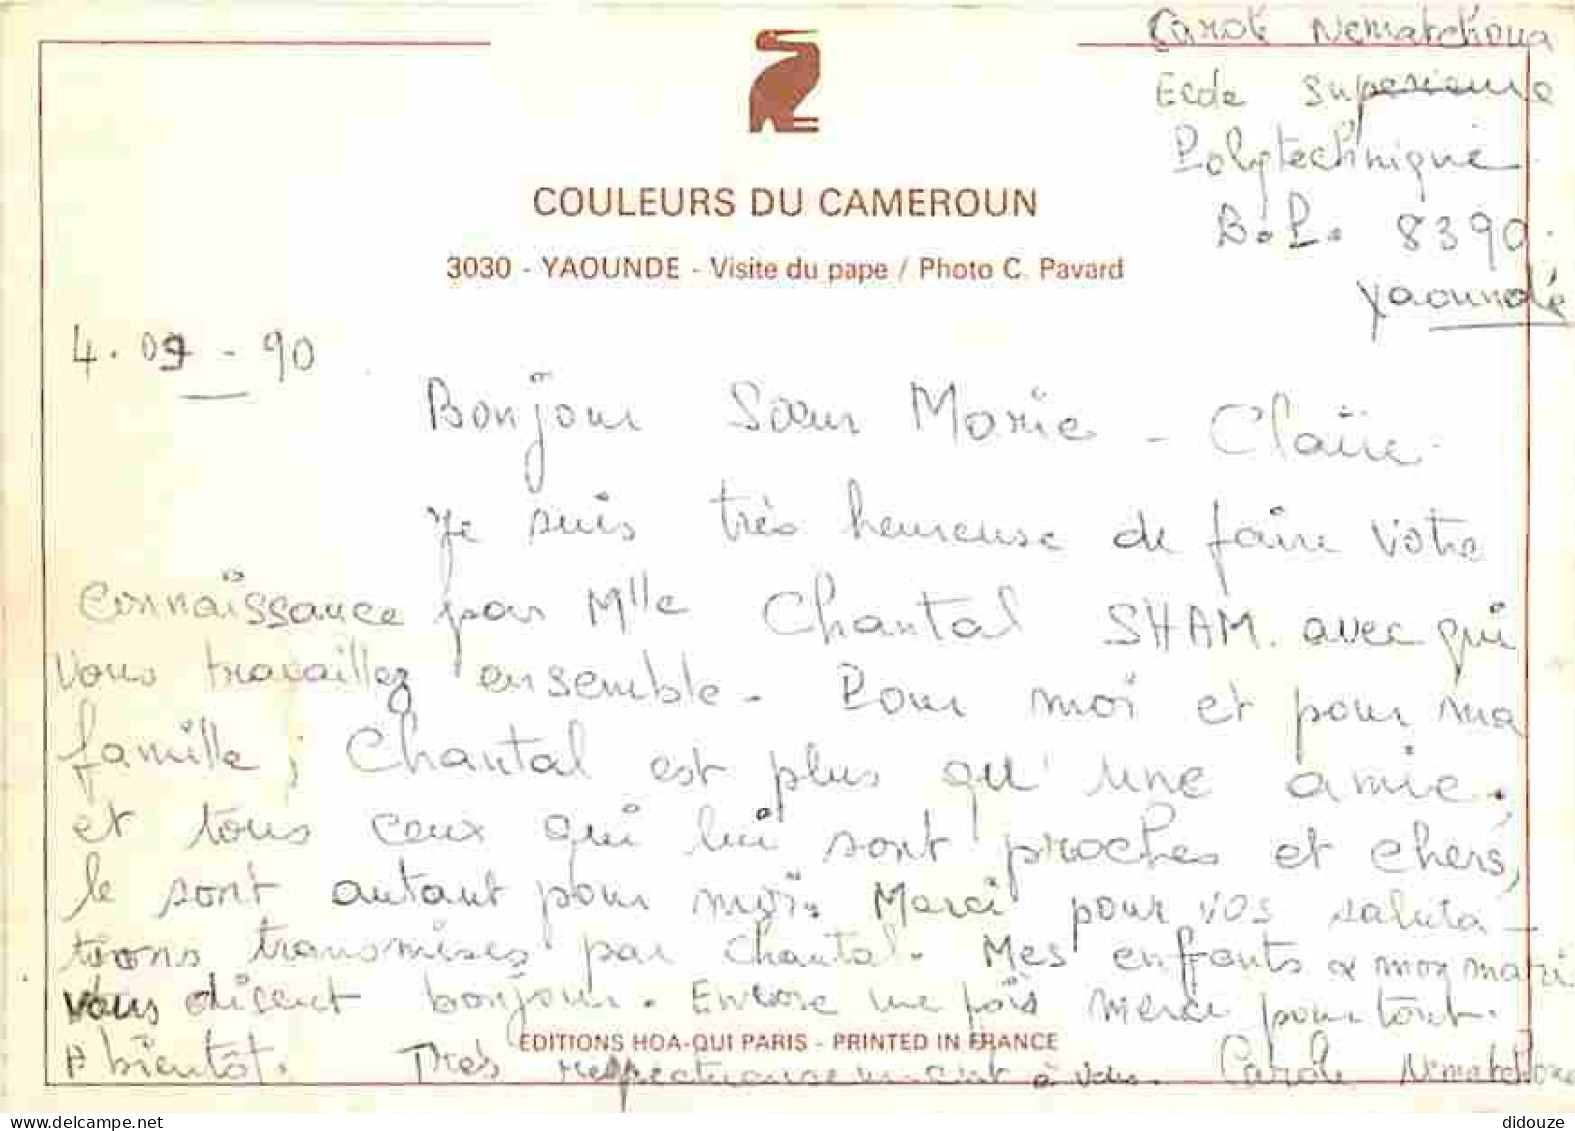 Carole Nematchoua
Ecole Superieure
Polytechnique
B.P. 8390
Yaoundé
COULEURS DU CAMEROUN
3030 - YAOUNDE - Visite du pape / Photo C. Pavard
4.09-90
Bonjour Sœur Marie-Claire
Je suis très heureuse de faire votre
connaissance par Mlle Chantal SHAM. avec qui
vous travaillez ensemble. Pour moi et pour ma
famille, Chantal est plus qu'une amie.
et tous ceux qui lui sont proches et chers,
le sont autant pour moi. Merci pour vos saluta-
tions transmises par Chantal. Mes enffants & mon mari
vous disent bonjour. Encore une fois merci pour tout.
EDITIONS HOA-QUI PARIS - PRINTED IN FRANCE
A bientôt. Très respectueusement à vous. Carole Nematchoua
didouze